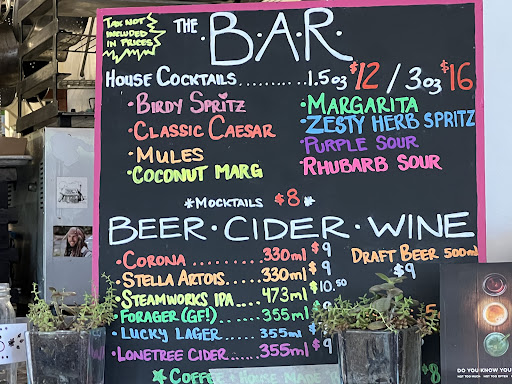 TAX NOT
INCLUDED
IN PRICES
THE B.A.R.
HOUSE COCKTAILS ........... 1.5oz $12 / 3oz $16
• BIRDY SPRITZ
• CLASSIC CAESAR
• MULES
• COCONUT MARG
• MARGARITA
• ZESTY HERB SPRITZ
• PURPLE SOUR
• RHUBARB SOUR
*MOCKTAILS $8*
BEER · CIDER · WINE
• CORONA .............. 330ml $9
• STELLA ARTOIS..... 330ml $9
• STEAMWORKS IPA.... 473ml $10.50
• FORAGER (GF!)..... 355ml $9
• LUCKY LAGER..... 355ml $9
• LONETREE CIDER..... 355ml $9
DRAFT BEER 500ml
$9
$8
DO YOU KNOW YOU